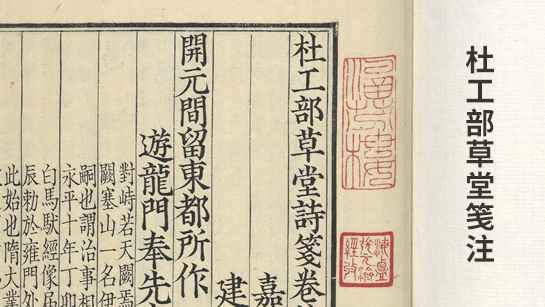 杜工部草堂笺注
涵芬樓
海鹽
張元濟
經收
杜工部草堂詩箋卷
嘉
建
開元間留東都所作
遊龍門奉先
對峙若天闕焉
闕塞山一名伊
嗣也謂治事相
永平十年丁卯
白馬馱經像屆
辰勅於雍門外
此始也隋大業